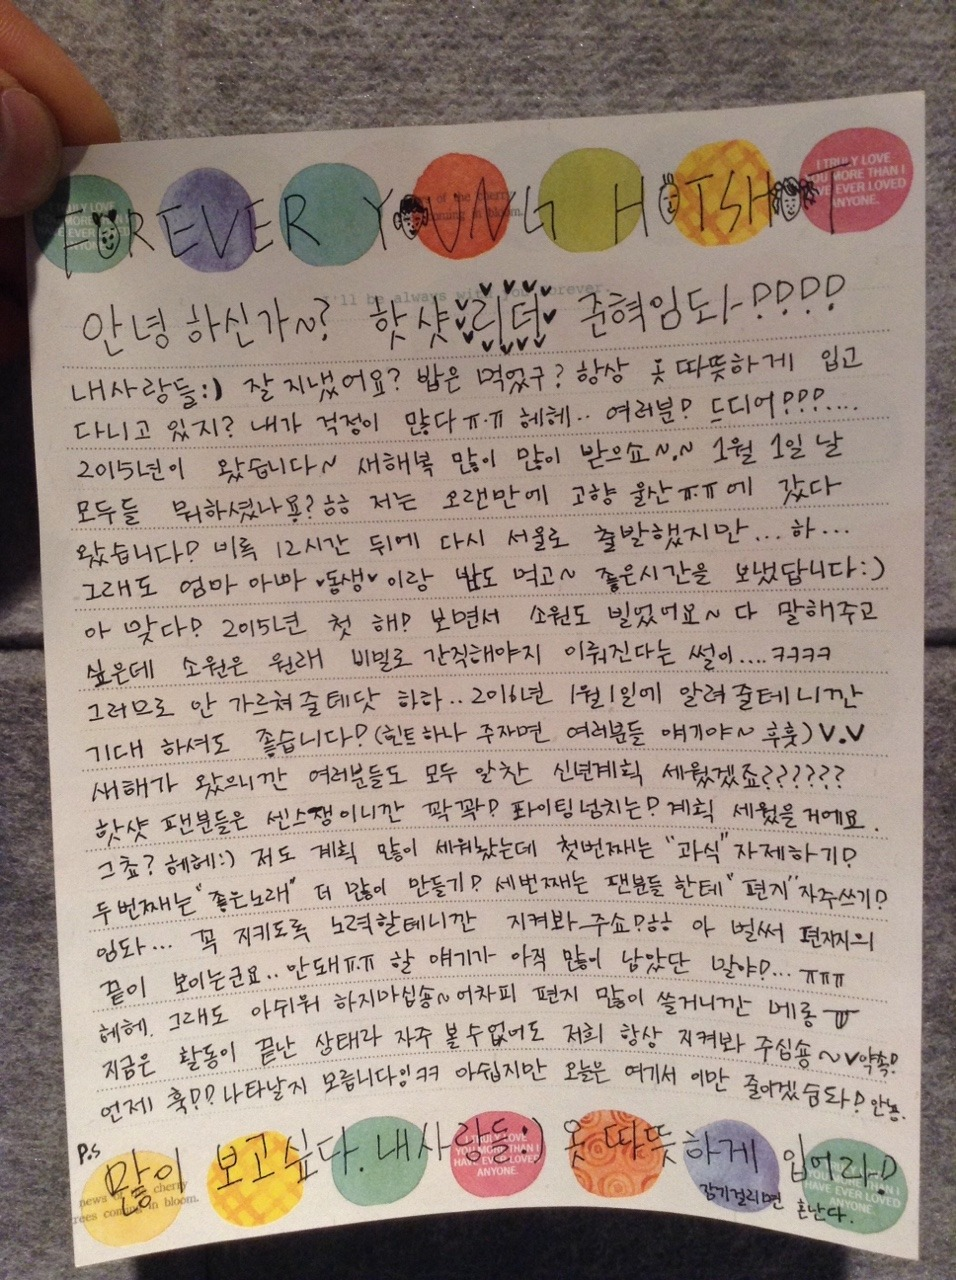 FOREVER YOUNG HOTSHOT
I TRULY LOVE YOU MORE THAN I HAVE EVER LOVED ANYONE.
I'll be always with you forever.
안녕하신가~? 핫샷 리더 준혁임돠!!!!
내사랑들:) 잘 지냈어요? 밥은 먹었구? 항상 옷 따뜻하게 입고
다니고 있지? 내가 걱정이 많다ㅠ.ㅠ 헤헤.. 여러분! 드디어!!!....
2015년이 왔습니다~ 새해복 많이 많이 받으쇼~.~ 1월 1일 날
모두들 뭐하셨나용? ㅎㅎ 저는 오랜만에 고향 울산ㅠ.ㅠ에 갔다
왔습니다! 비록 12시간 뒤에 다시 서울로 출발했지만... 하...
그래도 엄마 아빠 ♥동생♥이랑 밥도 먹고~ 좋은시간을 보냈답니다:)
아 맞다! 2015년 첫 해! 보면서 소원도 빌었어요~ 다 말해주고
싶은데 소원은 원래 비밀로 간직해야지 이뤄진다는 썰이....ㅋㅋㅋㅋ
그러므로 안 가르쳐줄테닷 하하.. 2016년 1월1일에 알려줄테니깐
기대 하셔도 좋습니다! (힌트하나 주자면 여러분들 얘기야~ 후훗) V.V
새해가 왔으니깐 여러분들도 모두 알찬 신년계획 세웠겠죠??????
핫샷 팬분들은 센스쟁이니깐 꽉꽉! 화이팅넘치는! 계획 세웠을거에요.
그쵸? 헤헤:) 저도 계획 많이 세워놨는데 첫번째는 "과식" 자제하기!
두번째는 "좋은노래" 더 많이 만들기! 세번째는 팬분들한테 "편지" 자주쓰기!
임돠... 꼭 지키도록 노력할테니깐 지켜봐주쇼!ㅎㅎ 아 벌써 편지지의
끝이 보이는군요.. 안돼ㅠ.ㅠ 할 얘기가 아직 많이 남았단 말야!... ㅠㅠㅠ
헤헤. 그래도 아쉬워 하지마십숑~ 어차피 편지 많이 쓸거니깐 메롱
지금은 활동이 끝난 상태라 자주 볼수없어도 저희 항상 지켜봐 주십숑~V약속!
언제 훅!! 나타날지 모릅니다잉ㅋㅋ 아쉽지만 오늘은 여기서 이만 줄이겠습돠! 안뇽.
P.S
많이 보고싶다. 내사랑들:) 옷 따뜻하게 입어라!
감기걸리면 혼난다.
I TRULY LOVE YOU MORE THAN I HAVE EVER LOVED ANYONE.